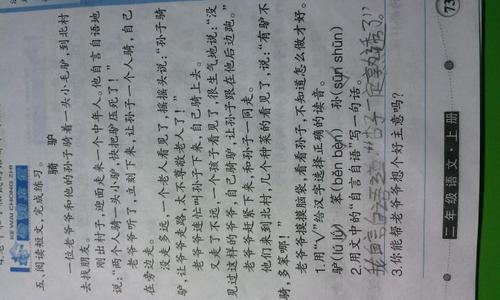 KE WAI ZHONG ZHI
五、阅读短文,完成练习。
骑 驴
一位老爷爷和他的孙子骑着一头小毛驴,到北村
去找朋友。
刚出村子,迎面走来一个中年人。他自言自语地
说:“两个人骑一头小驴,快把驴压死了!”
老爷爷听了,立刻下来,让孙子一个人骑,自己
在旁边走。
没走多远,一个老人看见了,摇摇头说:“孙子骑
驴,让爷爷走路,太不尊敬老人了!”
老爷爷连忙叫孙子下来,自己骑上去。
又走了不远,一个孩子看见了,很生气地说:“没
见过这样的爷爷,自己骑驴,让孙子跟在他后边跑。”
老爷爷赶紧下来,和孙子一同走。
他们来到北村,几个种菜的看见了,说:“有驴不
骑,多笨哪!”
老爷爷摸摸脑袋,看看孙子,不知道怎么做才好。
1.用“√”给汉字选择正确的读音。
驴(lǘ lǘ) 笨(bèn bèn) 孙(sūn shūn)
2.用文中的“自言自语”写一句话。
3.你能帮老爷爷想个好主意吗?
二年级语文·上册
73